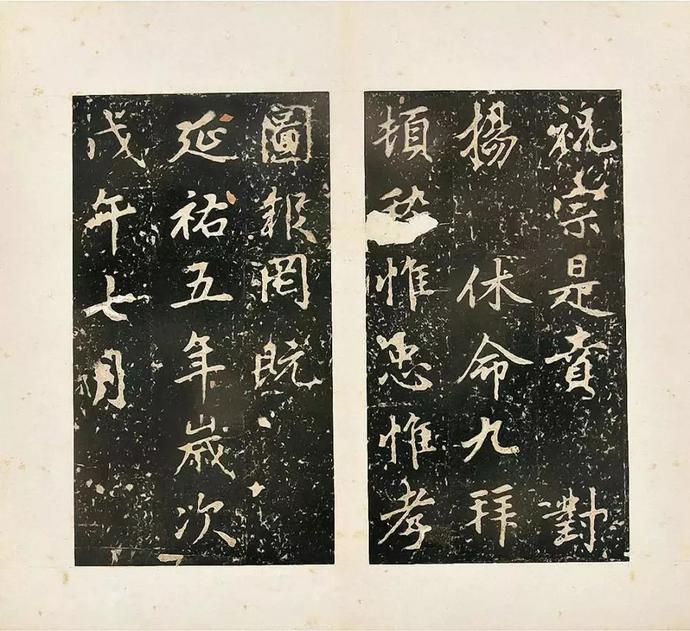 祝宗是賚 對
揚 休命九拜
頓 惟忠惟孝
圖報罔既
延祐五年歲次
戊午七月